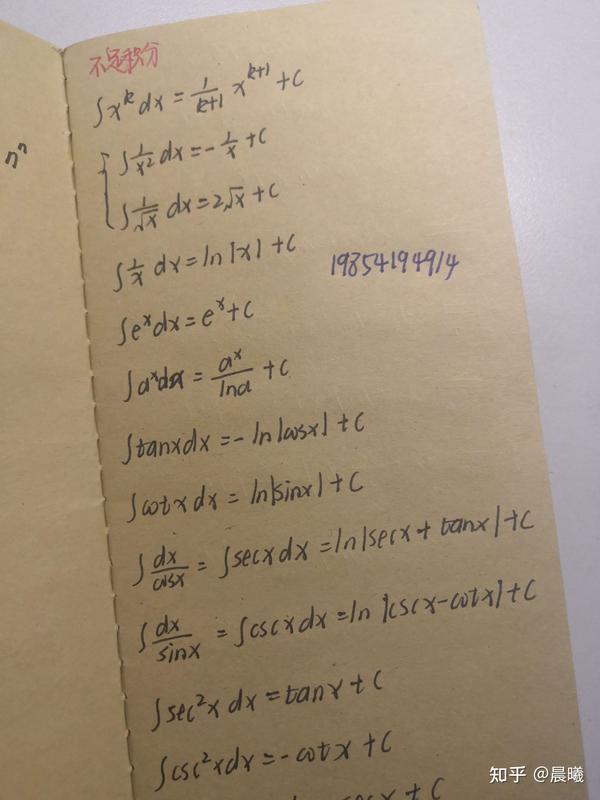 不定积分
∫x^k dx = 1/(k+1) x^(k+1) + C
∫1/x² dx = -1/x + C
∫1/√x dx = 2√x + C
∫1/x dx = ln|x| + C
19854194914
∫e^x dx = e^x + C
∫a^x dx = a^x/lna + C
∫tanx dx = -ln|cosx| + C
∫cotx dx = ln|sinx| + C
∫dx/cosx = ∫secx dx = ln|secx + tanx| + C
∫dx/sinx = ∫cscx dx = ln|cscx - cotx| + C
∫sec²x dx = tanx + C
∫csc²x dx = -cotx + C
知乎 @晨曦